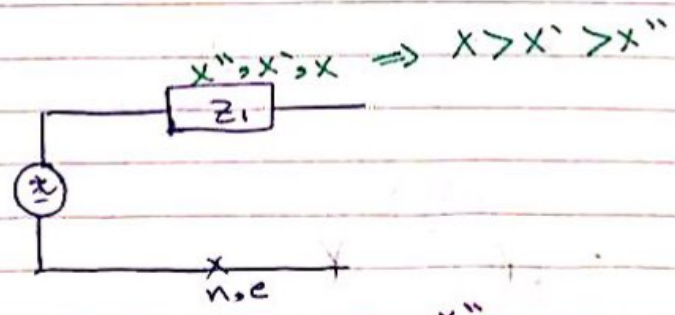 x'', x', x ⇒ X > X' > X''
Z₁
±
n, e
x''